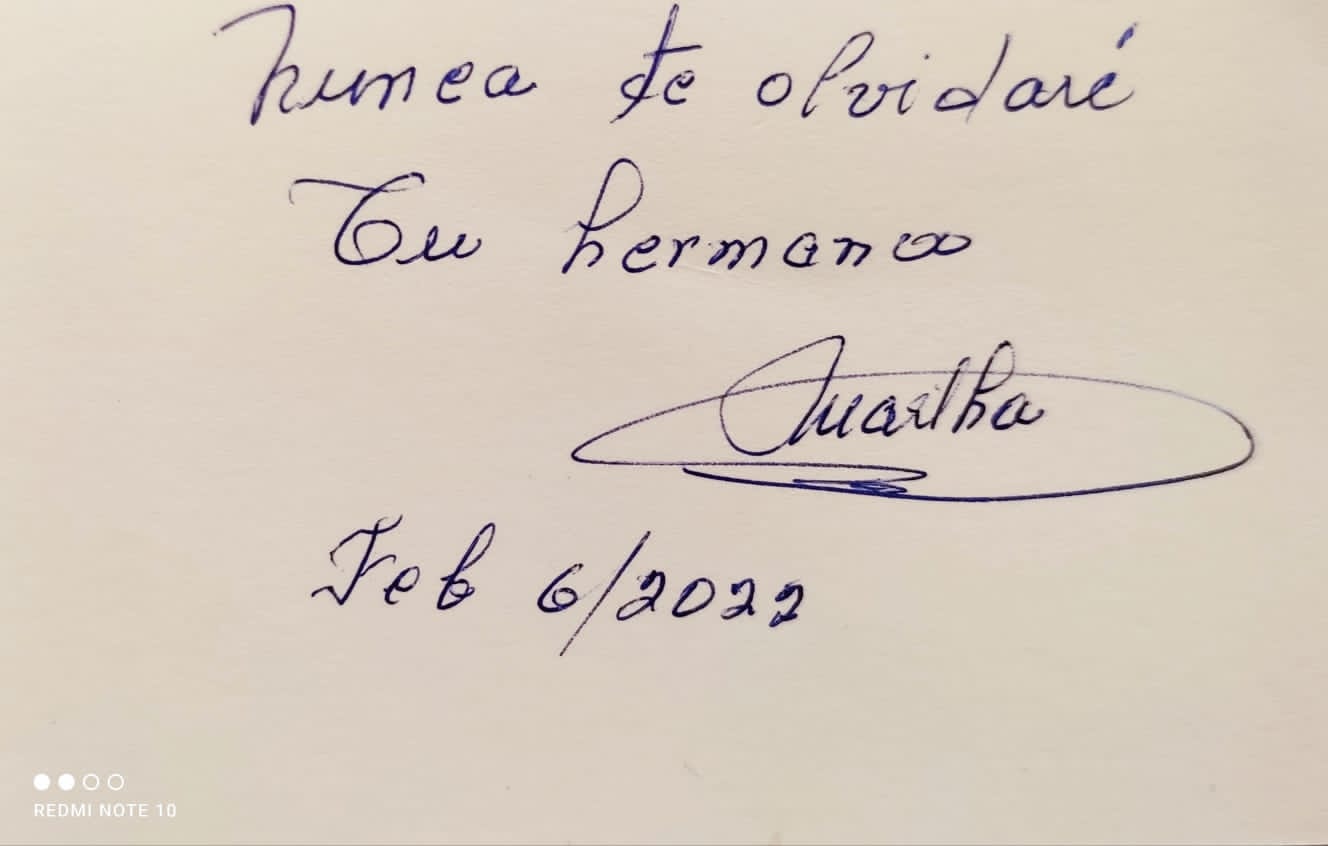 Nunca te olvidaré
Tu hermana
Martha
Feb 6/2022
REDMI NOTE 10